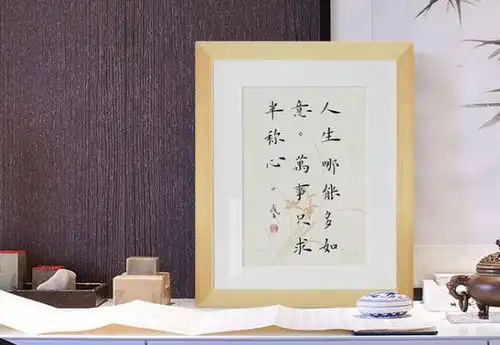 人生哪能多如
意。萬事只求
半称心